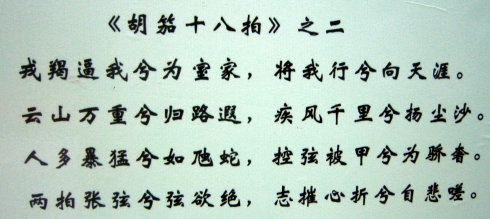 《胡笳十八拍》之二
戎羯逼我兮为室家，将我行兮向天涯。
云山万重兮归路遐，疾风千里兮扬尘沙。
人多暴猛兮如虺蛇，控弦被甲兮为骄奢。
两拍张弦兮弦欲绝，志摧心折兮自悲嗟。